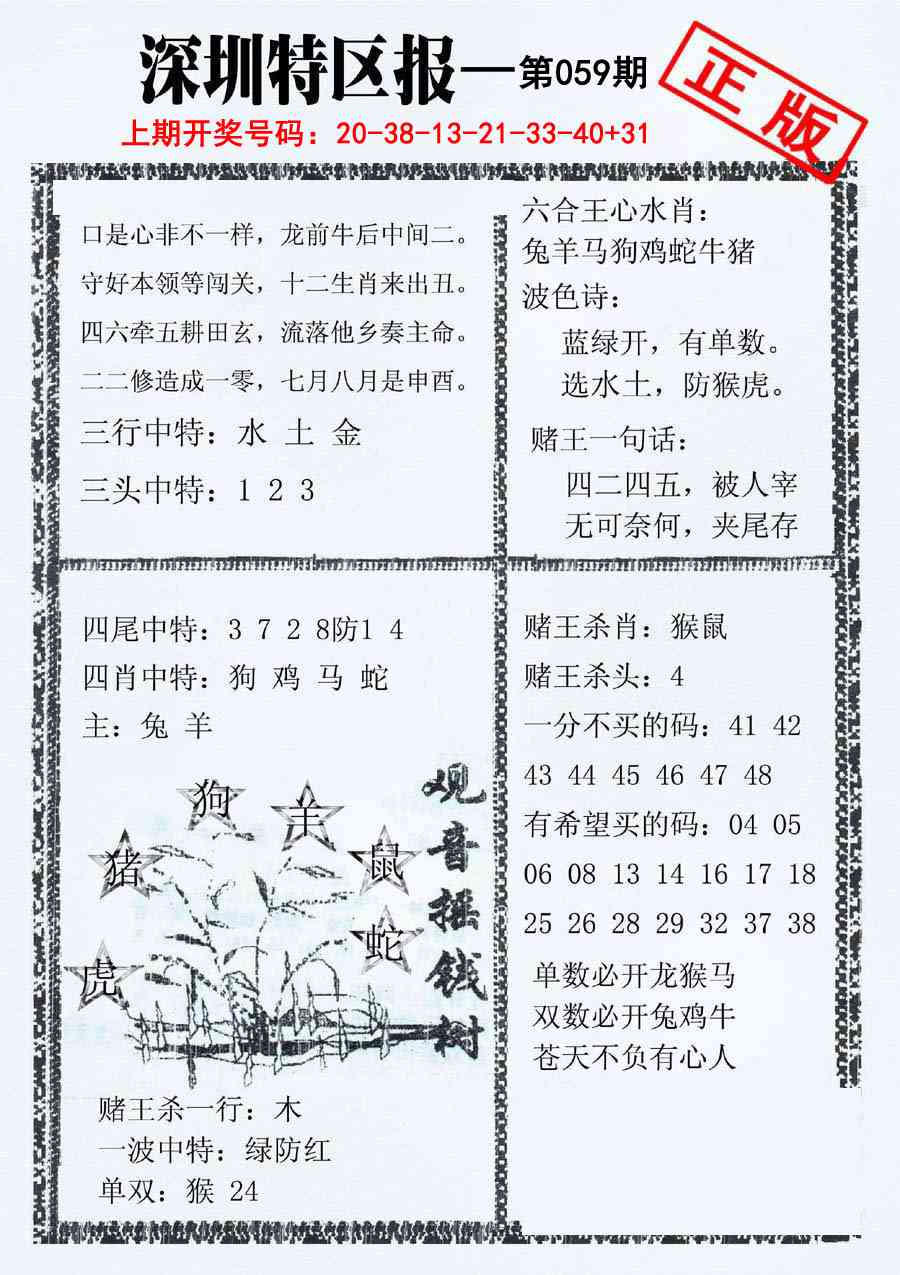 深圳特区报—第059期
正版
上期开奖号码：20-38-13-21-33-40+31
口是心非不一样，龙前牛后中间二。
守好本领等闯关，十二生肖来出丑。
四六牵五耕田玄，流落他乡奏主命。
二二修造成一零，七月八月是申酉。
三行中特：水 土 金
三头中特：1 2 3
六合王心水肖：
兔羊马狗鸡蛇牛猪
波色诗：
蓝绿开，有单数。
选水土，防猴虎。
赌王一句话：
四二四五，被人宰
无可奈何，夹尾存
四尾中特：3 7 2 8防1 4
四肖中特：狗 鸡 马 蛇
主：兔 羊
狗
羊
猪
鼠
虎
蛇
观音摇钱树
赌王杀一行：木
一波中特：绿防红
单双：猴 24
赌王杀肖：猴鼠
赌王杀头：4
一分不买的码：41 42
43 44 45 46 47 48
有希望买的码：04 05
06 08 13 14 16 17 18
25 26 28 29 32 37 38
单数必开龙猴马
双数必开兔鸡牛
苍天不负有心人